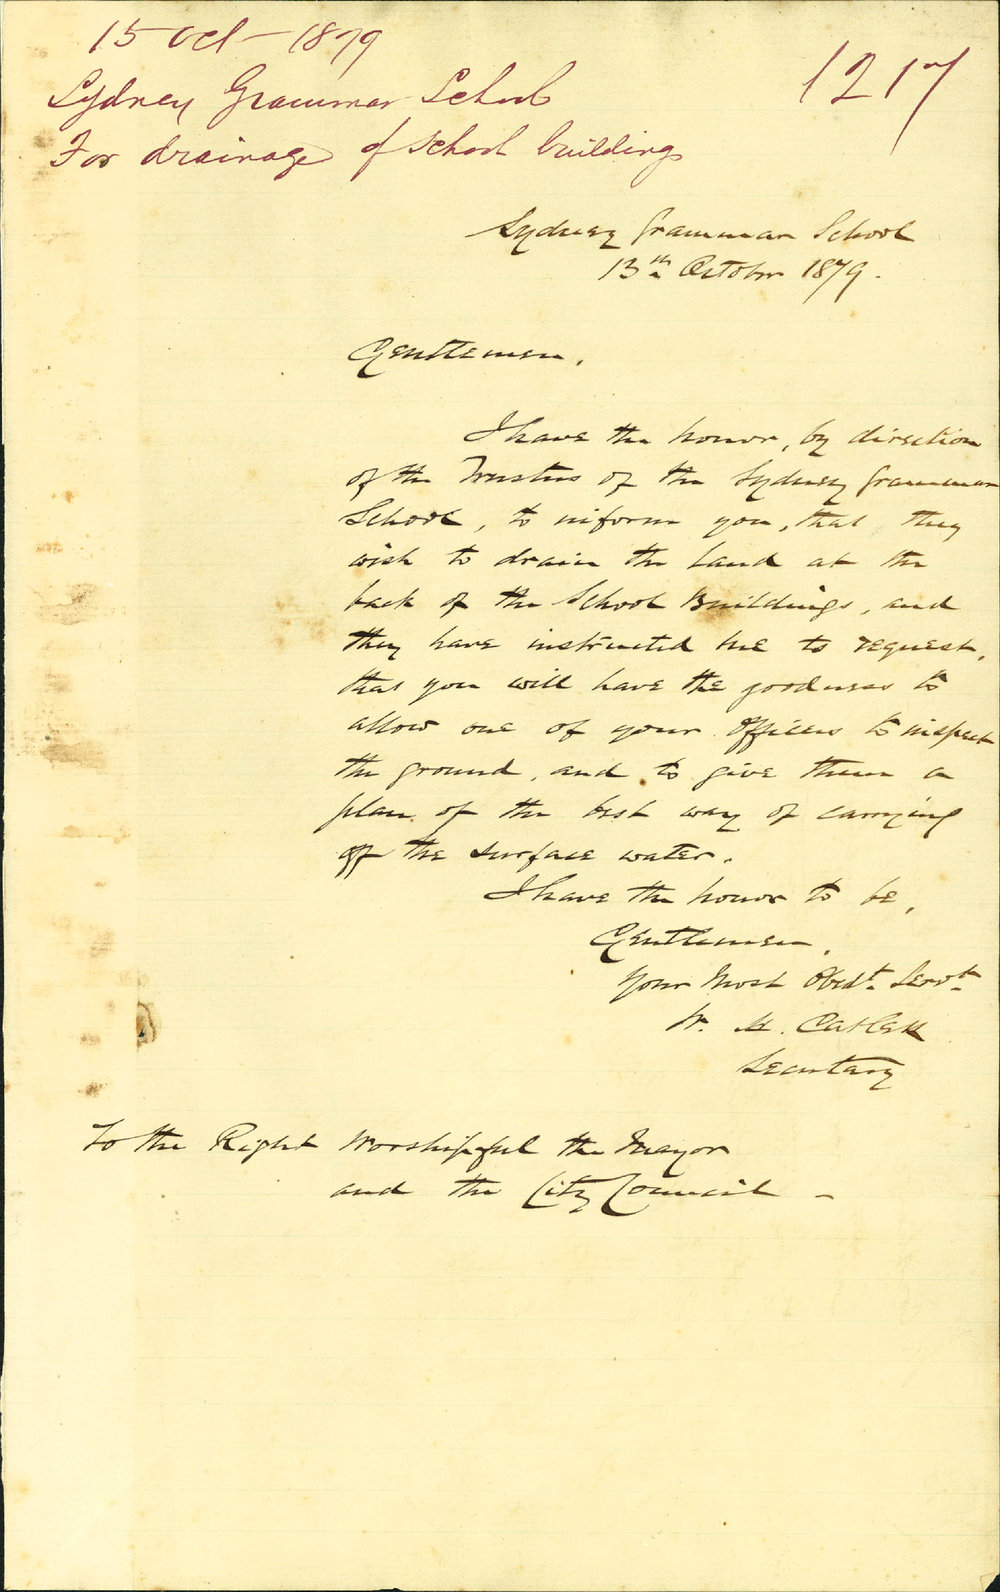 15 Oct - 1879
1217
Sydney Grammar School
For drainage of School buildings
Sydney Grammar School
13th October 1879.
Gentlemen,
I have the honor, by direction
of the Trustees of the Sydney Grammar
School, to inform you, that they
wish to drain the land at the
back of the School Buildings, and
they have instructed me to request,
that you will have the goodness to
allow one of your Officers to inspect
the ground, and to give them a
plan of the best way of carrying
off the surface water.
I have the honor to be,
Gentlemen,
Your Most Obedt. Servt.
W. H. Catlett
Secretary
To the Right Worshipful the Mayor
and the City Council -